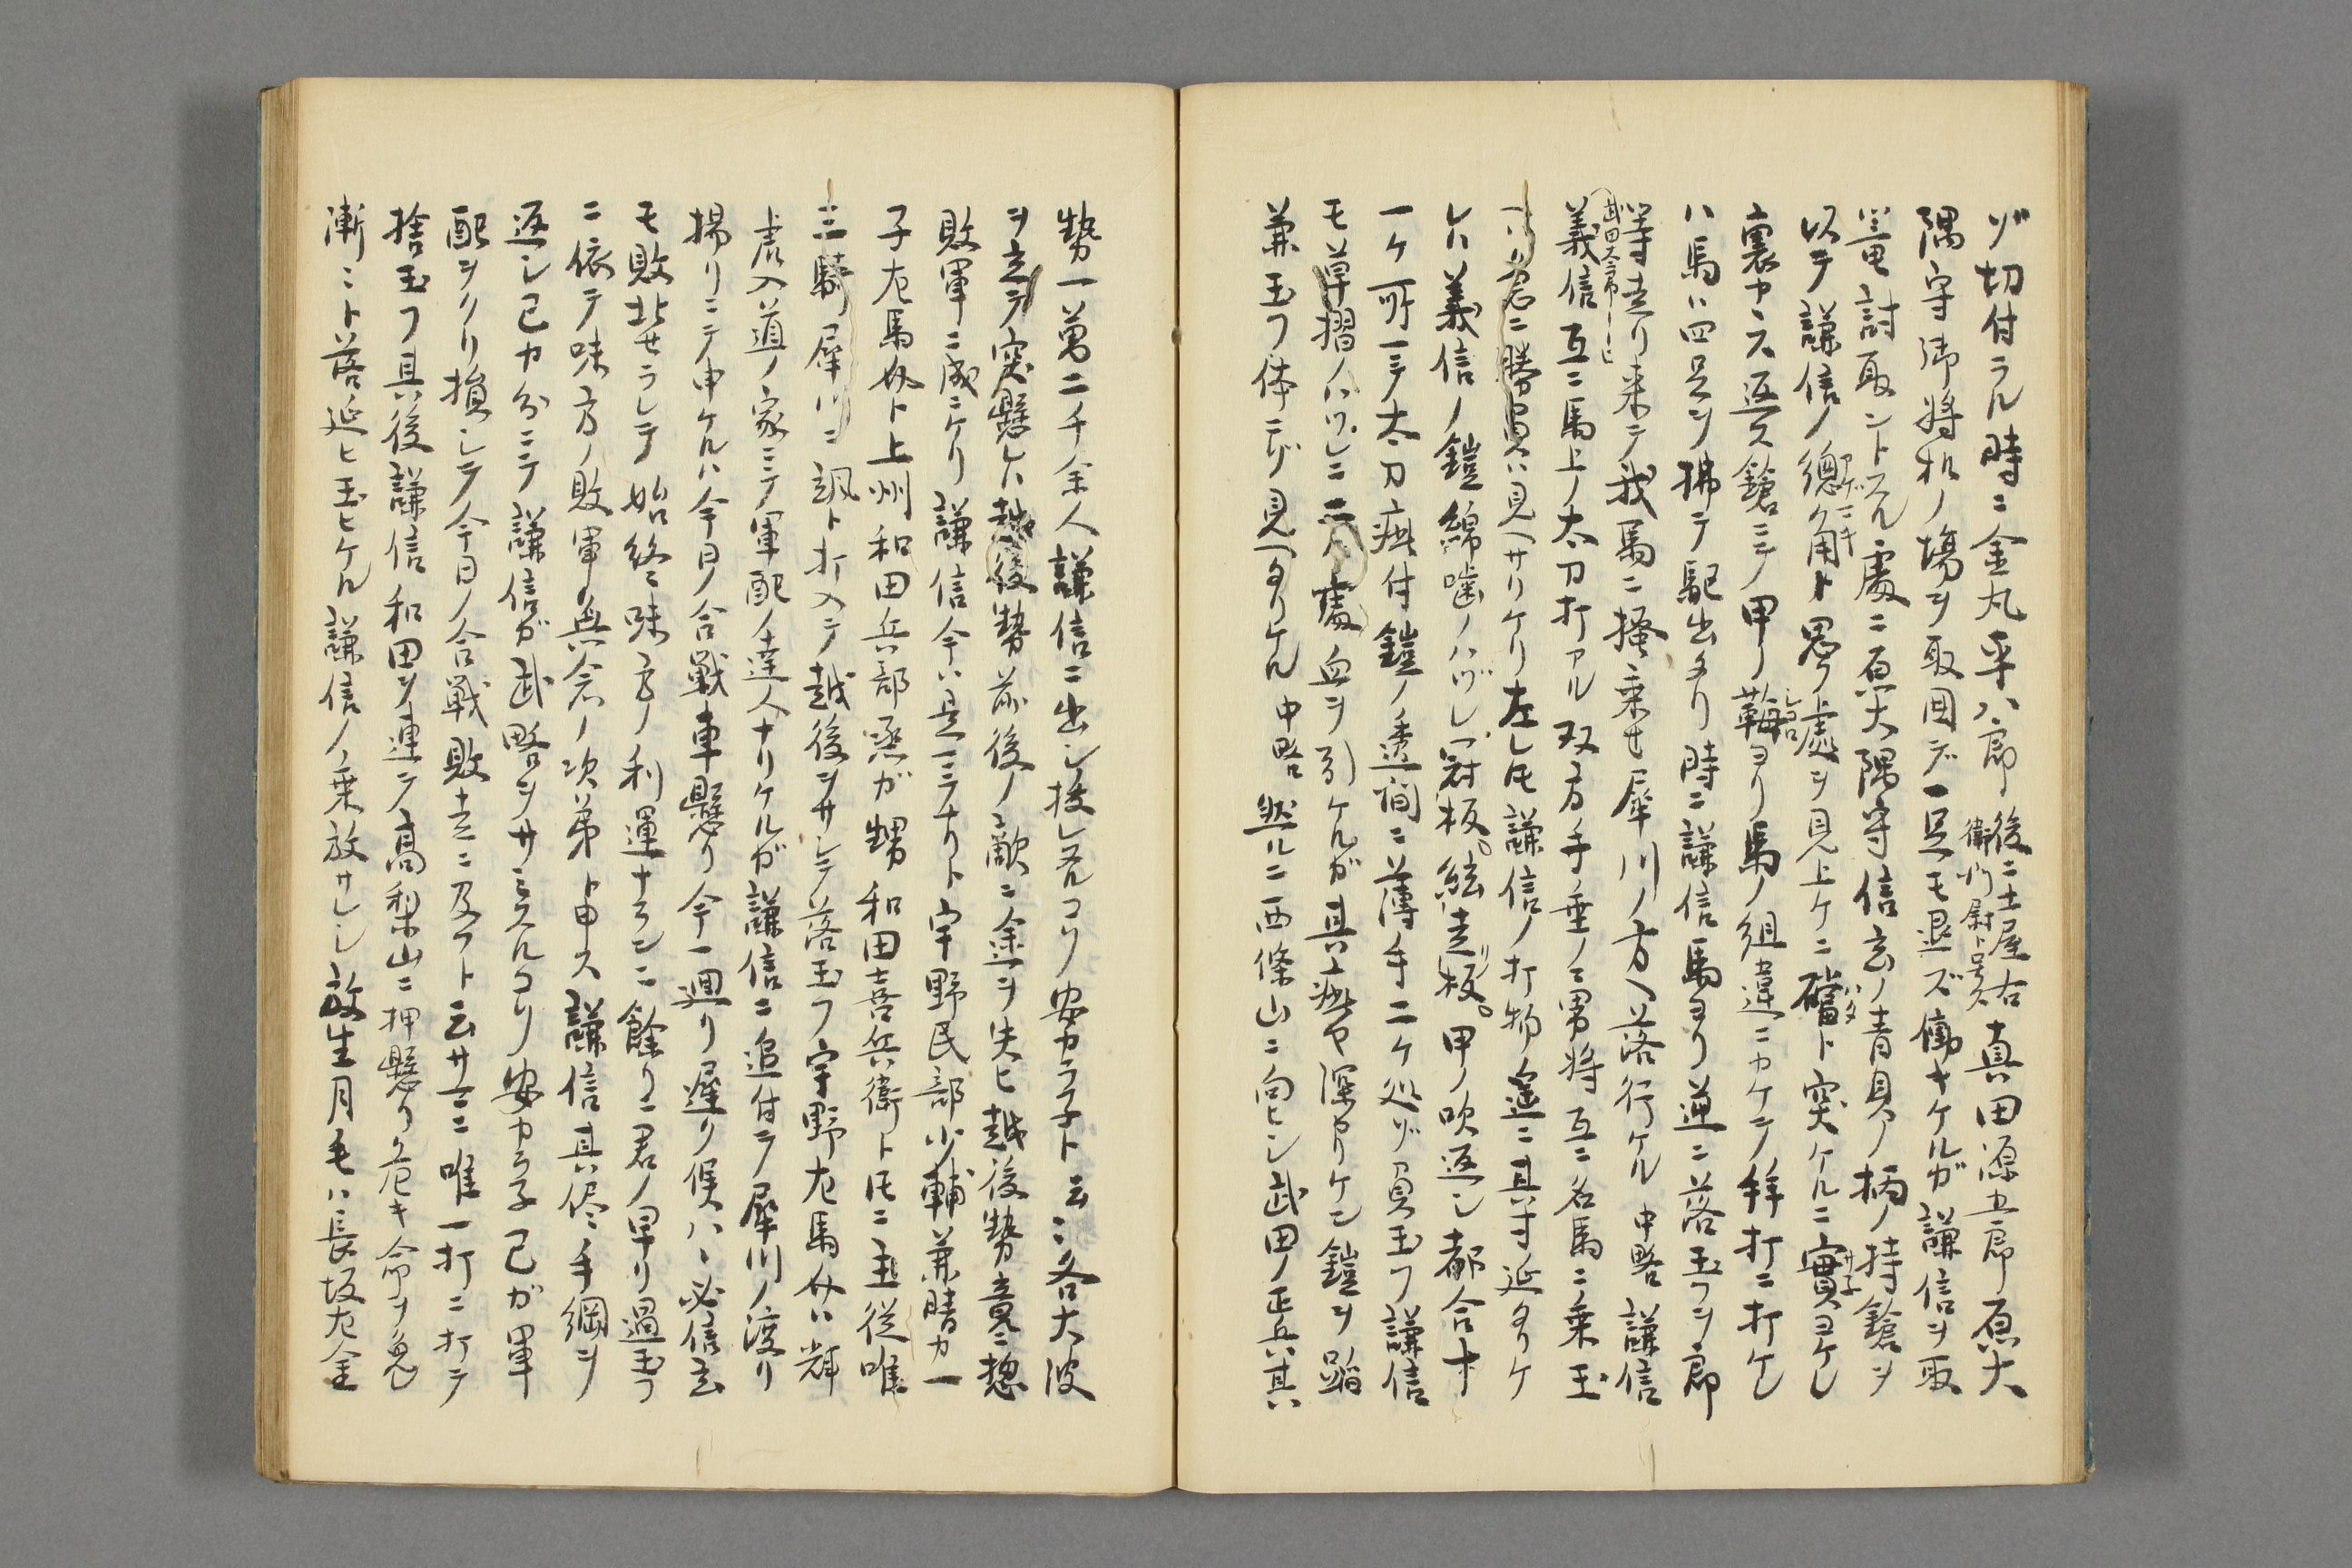 ゾ切付ラル時ニ金丸平八郎後ニ土屋右衛門尉ト号ス真田源五郎原大
隅守御將机ノ塲ヲ取囲デ一足モ退ズ働キケルガ謙信ヲ取
篭討取ントスル處ニ原大隅守信玄ノ青貝ノ柄ノ持鎗ヲ
以テ謙信ノ總角ト思フ處ヲ見上ケニ礑ト突ケルニ實ヨケレ
裏カヽス返ス鎗ニテ甲ノ鞠ヨリ馬ノ組違ニカケテ拝打ニ打ケレ
ハ馬ハ四足ヲ拂テ駈出タリ時ニ謙信馬ヨリ逆ニ落玉フヲ郎
等走リ来テ我馬ニ掻乗セ犀川ノ方ヘ落行ケル中略謙信
義信互ニ馬上ノ太刀打アル双方手垂ノ勇将互ニ名馬ニ乗玉
ハ君ニ勝負ハ見ヘサリケリ左レ𪜈謙信ノ打物ノ遥ニ其寸延タリケ
レハ義信ノ鎧綿噛ノハヅレ冠板絃走板甲ノ吹返シ都合十
一ケ所ニテ太刀疵付鎧ノ透間ニ薄手二ケ処ゾ負玉フ謙信
モ草摺ノハヅレニ二処血ヲ引ケルガ其上疵ヤ深カリケン鎧ヲ踏
兼玉フ体ニゾ見ヘタリケル中略然ルニ西條山ニ向ヒシ武田ノ正兵其
勢一萬二千余人謙信ニ出シ抜レタルコソ安カラ子ト云ニ各大波
ヲ立テ突懸ケハ越後勢前後ノ敵ニ途ヲ失ヒ越後勢竟ニ惣
敗軍ニ成ニケリ謙信今ハ是ニテナリト宇野民部少輔兼晴カ一
子左馬介ト上州和田兵部丞ガ甥和田喜兵衛ト𪜈ニ主従唯
三騎犀川ニ颯ト打入テ越後ヲサシテ落玉フ宇野左馬介ハ輝
虎入道ノ家ニテ軍配ノ達人ナリケルガ謙信ニ追付テ犀川ノ渡リ
揚リニテ申ケルハ今日ノ合戦車懸リ今一廻リ遅ク候ハヽ必信玄
モ敗北セラレテ始終ニ味方ノ利運ナランニ餘リニ君ノ早リ過玉フ
ニ依テ味方ノ敗軍無念ノ次第ト申ス謙信其侭手綱ヲ
返シ己カ分ニテ謙信ガ武畧ヲサミスルコソ安カラ子己ガ軍
配ヲクリ損シテ今日ノ合戦敗走ニ及フト云サニ唯一打ニ打テ
捨玉フ其後謙信和田ヲ連テ高梨山ニ押懸リ危キ命ヲ免
漸ニト落延ヒ玉ヒケル謙信ノ乗放サレシ放生月毛ハ長坂左金